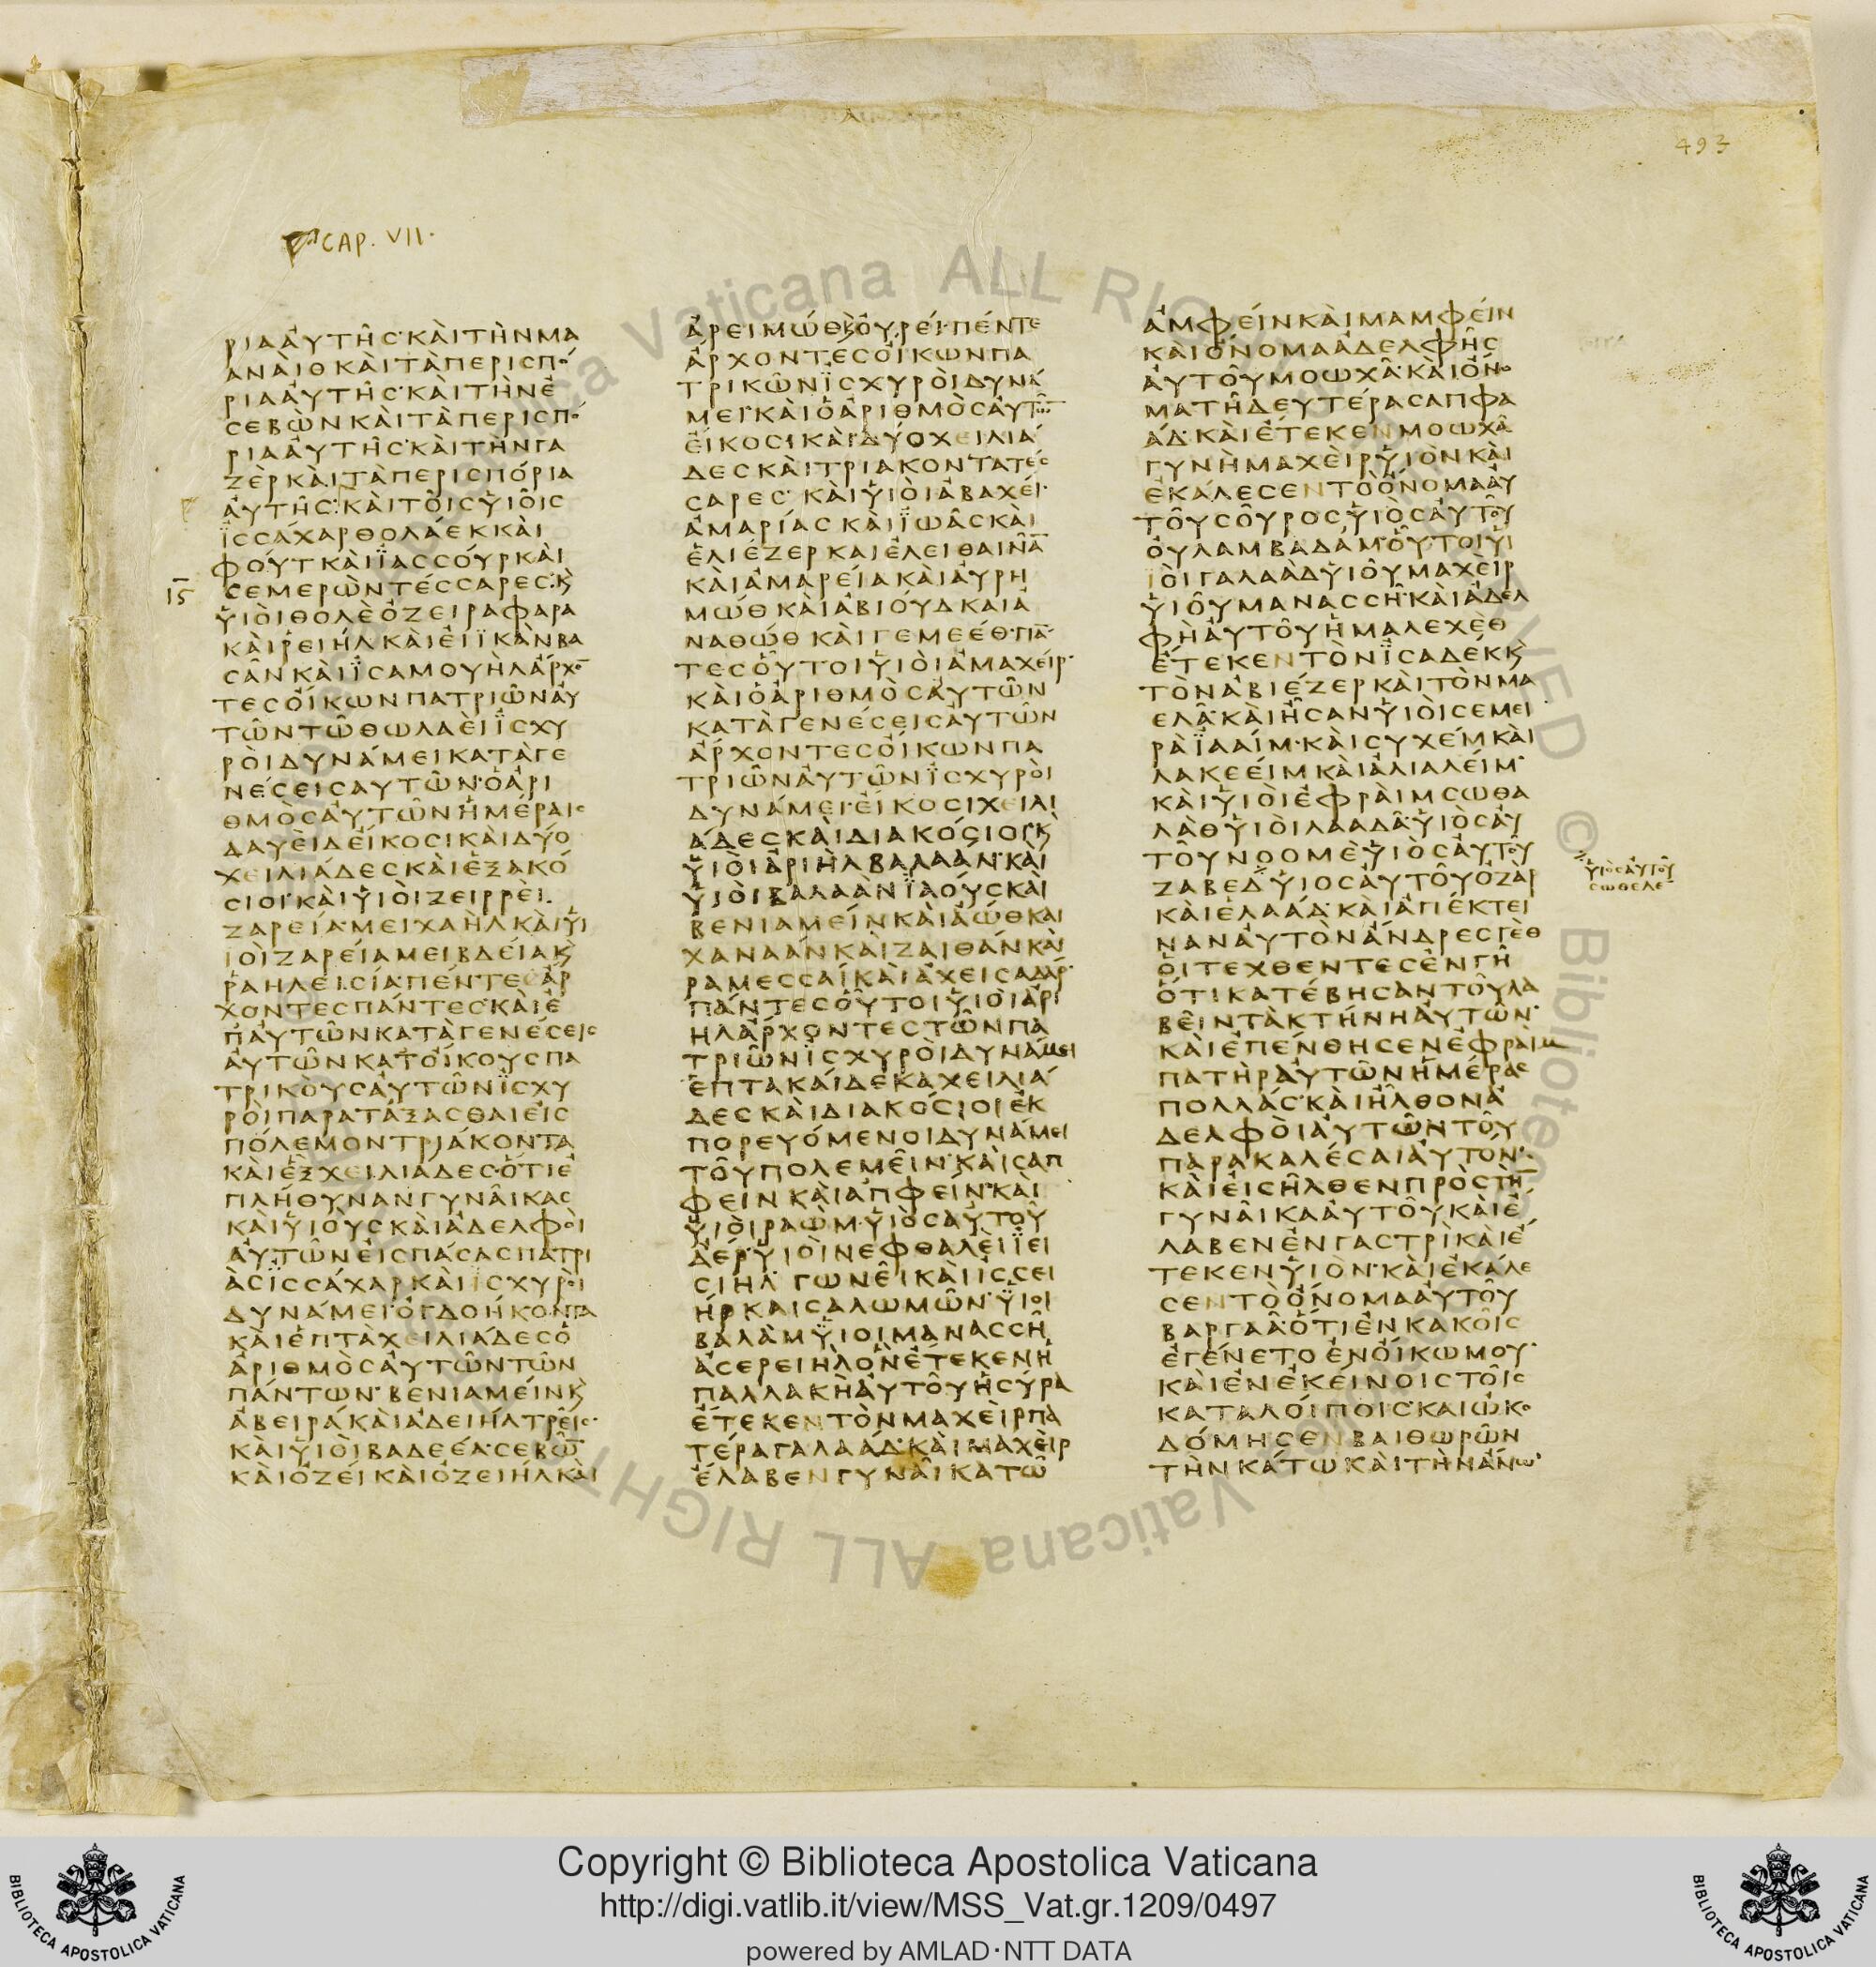 493
CAP. VII.
ΡΙΑΑΥΤΗΣ·ΚΑΙΤΗΝΜΑ
ΑΝΑΙΘΚΑΙΤΑΠΕΡΙΣΠΟ
ΡΙΑΑΥΤΗΣ·ΚΑΙΤΗΝΕ
ΣΕΒΩΝΚΑΙΤΑΠΕΡΙΣΠΟ
ΡΙΑΑΥΤΗΣ·ΚΑΙΤΗΝΓΑ
ΖΕΡΚΑΙΤΑΠΕΡΙΣΠΟΡΙΑ
ΑΥΤΗΣ·ΚΑΙΤΟΙΣΥΙΟΙΣ
ΪΣΣΑΧΑΡΘΟΛΑΕΚΚΑΙ
ΦΟΥΤΚΑΙΪΑΣΣΟΥΡΚΑΙ
ΙϚ
ΣΕΜΕΡΩΝΤΕΣΣΑΡΕΣ·Κ
ΥΙΟΙΘΟΛΕΟΖΕΙΡΑΦΑΡΑ
ΚΑΙΡΕΙΗΛΚΑΙΕΙΪΚΑΝΒΑ
ΣΑΝΚΑΙΪΣΑΜΟΥΗΛΑΡΧΟ
ΤΕΣΟΙΚΩΝΠΑΤΡΙΩΝΑΥ
ΤΩΝΤΩΘΩΛΑΕΙΪΣΧΥ
ΡΟΙΔΥΝΑΜΕΙΚΑΤΑΓΕ
ΝΕΣΕΙΣΑΥΤΩΝ·ΟΑΡΙ
ΘΜΟΣΑΥΤΩΝΗΜΕΡΑΙΣ
ΔΑΥΕΙΔΕΙΚΟΣΙΚΑΙΔΥΟ
ΧΕΙΛΙΑΔΕΣΚΑΙΕΞΑΚΟ
ΣΙΟΙ·ΚΑΙΥΙΟΙΖΕΙΡΡΕΙ
ΖΑΡΕΙΑ·ΜΕΙΧΑΗΛΚΑΙΥΙ
ΙΟΙΖΑΡΕΙΑΜΕΙΒΔΕΙΑΚ
ΡΑΗΛΕΙ·ΣΙΑ·ΠΕΝΤΕΑΡ
ΧΟΝΤΕΣΠΑΝΤΕΣ·ΚΑΙΕ
ΠΑΥΤΩΝΚΑΤΑΓΕΝΕΣΕΙΣ
ΑΥΤΩΝΚΑΤΟΙΚΟΥΣΠΑ
ΤΡΙΚΟΥΣΑΥΤΩΝΪΣΧΥ
ΡΟΙΠΑΡΑΤΑΞΑΣΘΑΙΕΙΣ
ΠΟΛΕΜΟΝΤΡΙΑΚΟΝΤΑ
ΚΑΙΕΞΧΕΙΛΙΑΔΕΣ·ΟΤΙΕ
ΠΛΗΘΥΝΑΝΓΥΝΑΙΚΑΣ
ΚΑΙΥΙΟΥΣΚΑΙΑΔΕΛΦΟΙ
ΑΥΤΩΝΕΙΣΠΑΣΑΣΠΑΤΡΙ
ΑΣΪΣΣΑΧΑΡΚΑΙΪΣΧΥΡΟΙ
ΔΥΝΑΜΕΙ·ΟΓΔΟΗΚΟΝΤΑ
ΚΑΙΕΠΤΑΧΕΙΛΙΑΔΕΣΟ
ΑΡΙΘΜΟΣΑΥΤΩΝΤΩΝ
ΠΑΝΤΩΝ·ΒΕΝΙΑΜΕΙΝΚ
ΑΒΕΙΡΑΚΑΙΑΔΕΙΗΛΤΡΕΙΣ·
ΚΑΙΥΙΟΙΒΑΔΕΕΑ·ΣΕΒΩ
ΚΑΙΟΖΕΙΚΑΙΟΖΕΙΗΛΚΑΙ
ΑΡΕΙΜΩΘΚΟΥΡΕΙ·ΠΕΝΤΕ
ΑΡΧΟΝΤΕΣΟΙΚΩΝΠΑ
ΤΡΙΚΩΝΪΣΧΥΡΟΙΔΥΝΑ
ΜΕΙ·ΚΑΙΟΑΡΙΘΜΟΣΑΥΤΩ
ΕΙΚΟΣΙΚΑΙΔΥΟΧΕΙΛΙΑ
ΔΕΣΚΑΙΤΡΙΑΚΟΝΤΑΤΕΣ
ΣΑΡΕΣ·ΚΑΙΥΙΟΙΑΒΑΧΕΙ·
ΑΜΑΡΙΑΣΚΑΙΪΩΑΣΚΑΙ
ΕΛΙΕΖΕΡΚΑΙΕΛΕΙΘΑΙΝΑ
ΚΑΙΑΜΑΡΕΙΑΚΑΙΑΥΡΗ
ΜΩΘΚΑΙΑΒΙΟΥΔΚΑΙΑ
ΝΑΘΩΘΚΑΙΓΕΜΕΕΘ·ΠΑ
ΤΕΣΟΥΤΟΙΥΙΟΙΑΜΑΧΕΙΡ·
ΚΑΙΟΑΡΙΘΜΟΣΑΥΤΩΝ
ΚΑΤΑΓΕΝΕΣΕΙΣΑΥΤΩΝ
ΑΡΧΟΝΤΕΣΟΙΚΩΝΠΑ
ΤΡΙΩΝΑΥΤΩΝΪΣΧΥΡΟΙ
ΔΥΝΑΜΕΙ·ΕΙΚΟΣΙΧΕΙΛΙ
ΑΔΕΣΚΑΙΔΙΑΚΟΣΙΟΙ·Κ
ΥΙΟΙΑΡΙΗΛΒΑΛΑΑΝ·ΚΑΙ
ΥΙΟΙΒΑΛΑΑΝΪΑΟΥΣΚΑΙ
ΒΕΝΙΑΜΕΙΝΚΑΙΑΩΘΚΑΙ
ΧΑΝΑΑΝΚΑΙΖΑΙΘΑΝΚΑΙ
ΡΑΜΕΣΣΑΙΚΑΙΑΧΕΙΣΑΔΑΡ·
ΠΑΝΤΕΣΟΥΤΟΙΥΙΟΙΑΡΙ
ΗΛΑΡΧΟΝΤΕΣΤΩΝΠΑ
ΤΡΙΩΝΪΣΧΥΡΟΙΔΥΝΑΜΕΙ
ΕΠΤΑΚΑΙΔΕΚΑΧΕΙΛΙΑ
ΔΕΣΚΑΙΔΙΑΚΟΣΙΟΙΕΚ
ΠΟΡΕΥΟΜΕΝΟΙΔΥΝΑΜΕΙ
ΤΟΥΠΟΛΕΜΕΙΝ·ΚΑΙΣΑΠ
ΦΕΙΝΚΑΙΑΠΦΕΙΝ·ΚΑΙ
ΥΙΟΙΡΑΩΜ·ΥΙΟΣΑΥΤΟΥ
ΑΕΡ·ΥΙΟΙΝΕΦΘΑΛΕΙΪΕΙ
ΣΙΗΛ·ΓΩΝΕΙΚΑΙΙΣΣΕΙ
ΗΡΚΑΙΣΑΛΩΜΩΝ·ΥΙΟΙ
ΒΑΛΑΜΫΙΟΙΜΑΝΑΣΣΗ
ΑΣΕΡΕΙΗΛΟΝΕΤΕΚΕΝΗ
ΠΑΛΛΑΚΗΑΥΤΟΥΗΣΥΡΑ
ΕΤΕΚΕΝΤΟΝΜΑΧΕΙΡΠΑ
ΤΕΡΑΓΑΛΑΑΔ·ΚΑΙΜΑΧΕΙΡ
ΕΛΑΒΕΝΓΥΝΑΙΚΑΤΩ
ΑΜΦΕΙΝΚΑΙΜΑΜΦΕΙΝ
ΚΑΙΟΝΟΜΑΑΔΕΛΦΗΣ
ΑΥΤΟΥΜΟΩΧΑ·ΚΑΙΟΝΟ
ΜΑΤΗΔΕΥΤΕΡΑΣΑΠΦΑ
ΑΔ·ΚΑΙΕΤΕΚΕΝΜΟΩΧΑ
ΓΥΝΗΜΑΧΕΙΡΥΙΟΝΚΑΙ
ΕΚΑΛΕΣΕΝΤΟΟΝΟΜΑΑΥ
ΤΟΥΣΟΥΡΟΣΥΙΟΣΑΥΤΟΥ
ΟΥΛΑΜΒΑΔΑΜ·ΟΥΤΟΙΥΙ
ΙΟΙΓΑΛΑΑΔΥΙΟΥΜΑΧΕΙΡ
ΥΙΟΥΜΑΝΑΣΣΗ·ΚΑΙΑΔΕΛ
ΦΗΑΥΤΟΥΗΜΑΛΕΧΕΘ
ΕΤΕΚΕΝΤΟΝΪΣΑΔΕΚΚ
ΤΟΝΑΒΙΕΖΕΡΚΑΙΤΟΝΜΑ
ΕΛΑ·ΚΑΙΗΣΑΝΥΙΟΙΣΕΜΕΙ
ΡΑΪΑΑΙΜ·ΚΑΙΣΥΧΕΜΚΑΙ
ΛΑΚΕΕΙΜΚΑΙΑΛΙΑΛΕΙΜ·
ΚΑΙΥΙΟΙΕΦΡΑΙΜΣΩΘΑ
ΛΑΘΥΙΟΙΛΑΑΔΑ·ΥΙΟΣΑΥ
ΤΟΥΝΟΟΜΕΥΙΟΣΑΥΤΟΥ
ΖΑΒΕΔΥΙΟΣΑΥΤΟΥΟΖΑΡ
ΥΙΟΣΑΥΤΟΥ
ΣΩΘΕΛΕ
ΚΑΙΕΛΑΑΔ·ΚΑΙΑΠΕΚΤΕΙ
ΝΑΝΑΥΤΟΝΑΝΔΡΕΣΓΕΘ
ΟΙΤΕΧΘΕΝΤΕΣΕΝΓΗ
ΟΤΙΚΑΤΕΒΗΣΑΝΤΟΥΛΑ
ΒΕΙΝΤΑΚΤΗΝΗΑΥΤΩΝ·
ΚΑΙΕΠΕΝΘΗΣΕΝΕΦΡΑΙΜ
ΠΑΤΗΡΑΥΤΩΝΗΜΕΡΑΣ
ΠΟΛΛΑΣ·ΚΑΙΗΛΘΟΝΑ
ΔΕΛΦΟΙΑΥΤΩΝΤΟΥ
ΠΑΡΑΚΑΛΕΣΑΙΑΥΤΟΝ·
ΚΑΙΕΙΣΗΛΘΕΝΠΡΟΣΤΗ
ΓΥΝΑΙΚΑΑΥΤΟΥΚΑΙΕ
ΛΑΒΕΝΕΝΓΑΣΤΡΙΚΑΙΕ
ΤΕΚΕΝΥΙΟΝ·ΚΑΙΕΚΑΛΕ
ΣΕΝΤΟΟΝΟΜΑΑΥΤΟΥ
ΒΑΡΓΑΑ·ΟΤΙΕΝΚΑΚΟΙΣ
ΕΓΕΝΕΤΟΕΝΟΙΚΩΜΟΥ·
ΚΑΙΕΝΕΚΕΙΝΟΙΣΤΟΙΣ
ΚΑΤΑΛΟΙΠΟΙΣ·ΚΑΙΩΚΟ
ΔΟΜΗΣΕΝΒΑΙΘΩΡΩΝ
ΤΗΝΚΑΤΩΚΑΙΤΗΝΑΝΩ·
Copyright © Biblioteca Apostolica Vaticana
http://digi.vatlib.it/view/MSS_Vat.gr.1209/0497
powered by AMLAD·NTT DATA
BIBLIOTECA APOSTOLICA VATICANA
BIBLIOTECA APOSTOLICA VATICANA